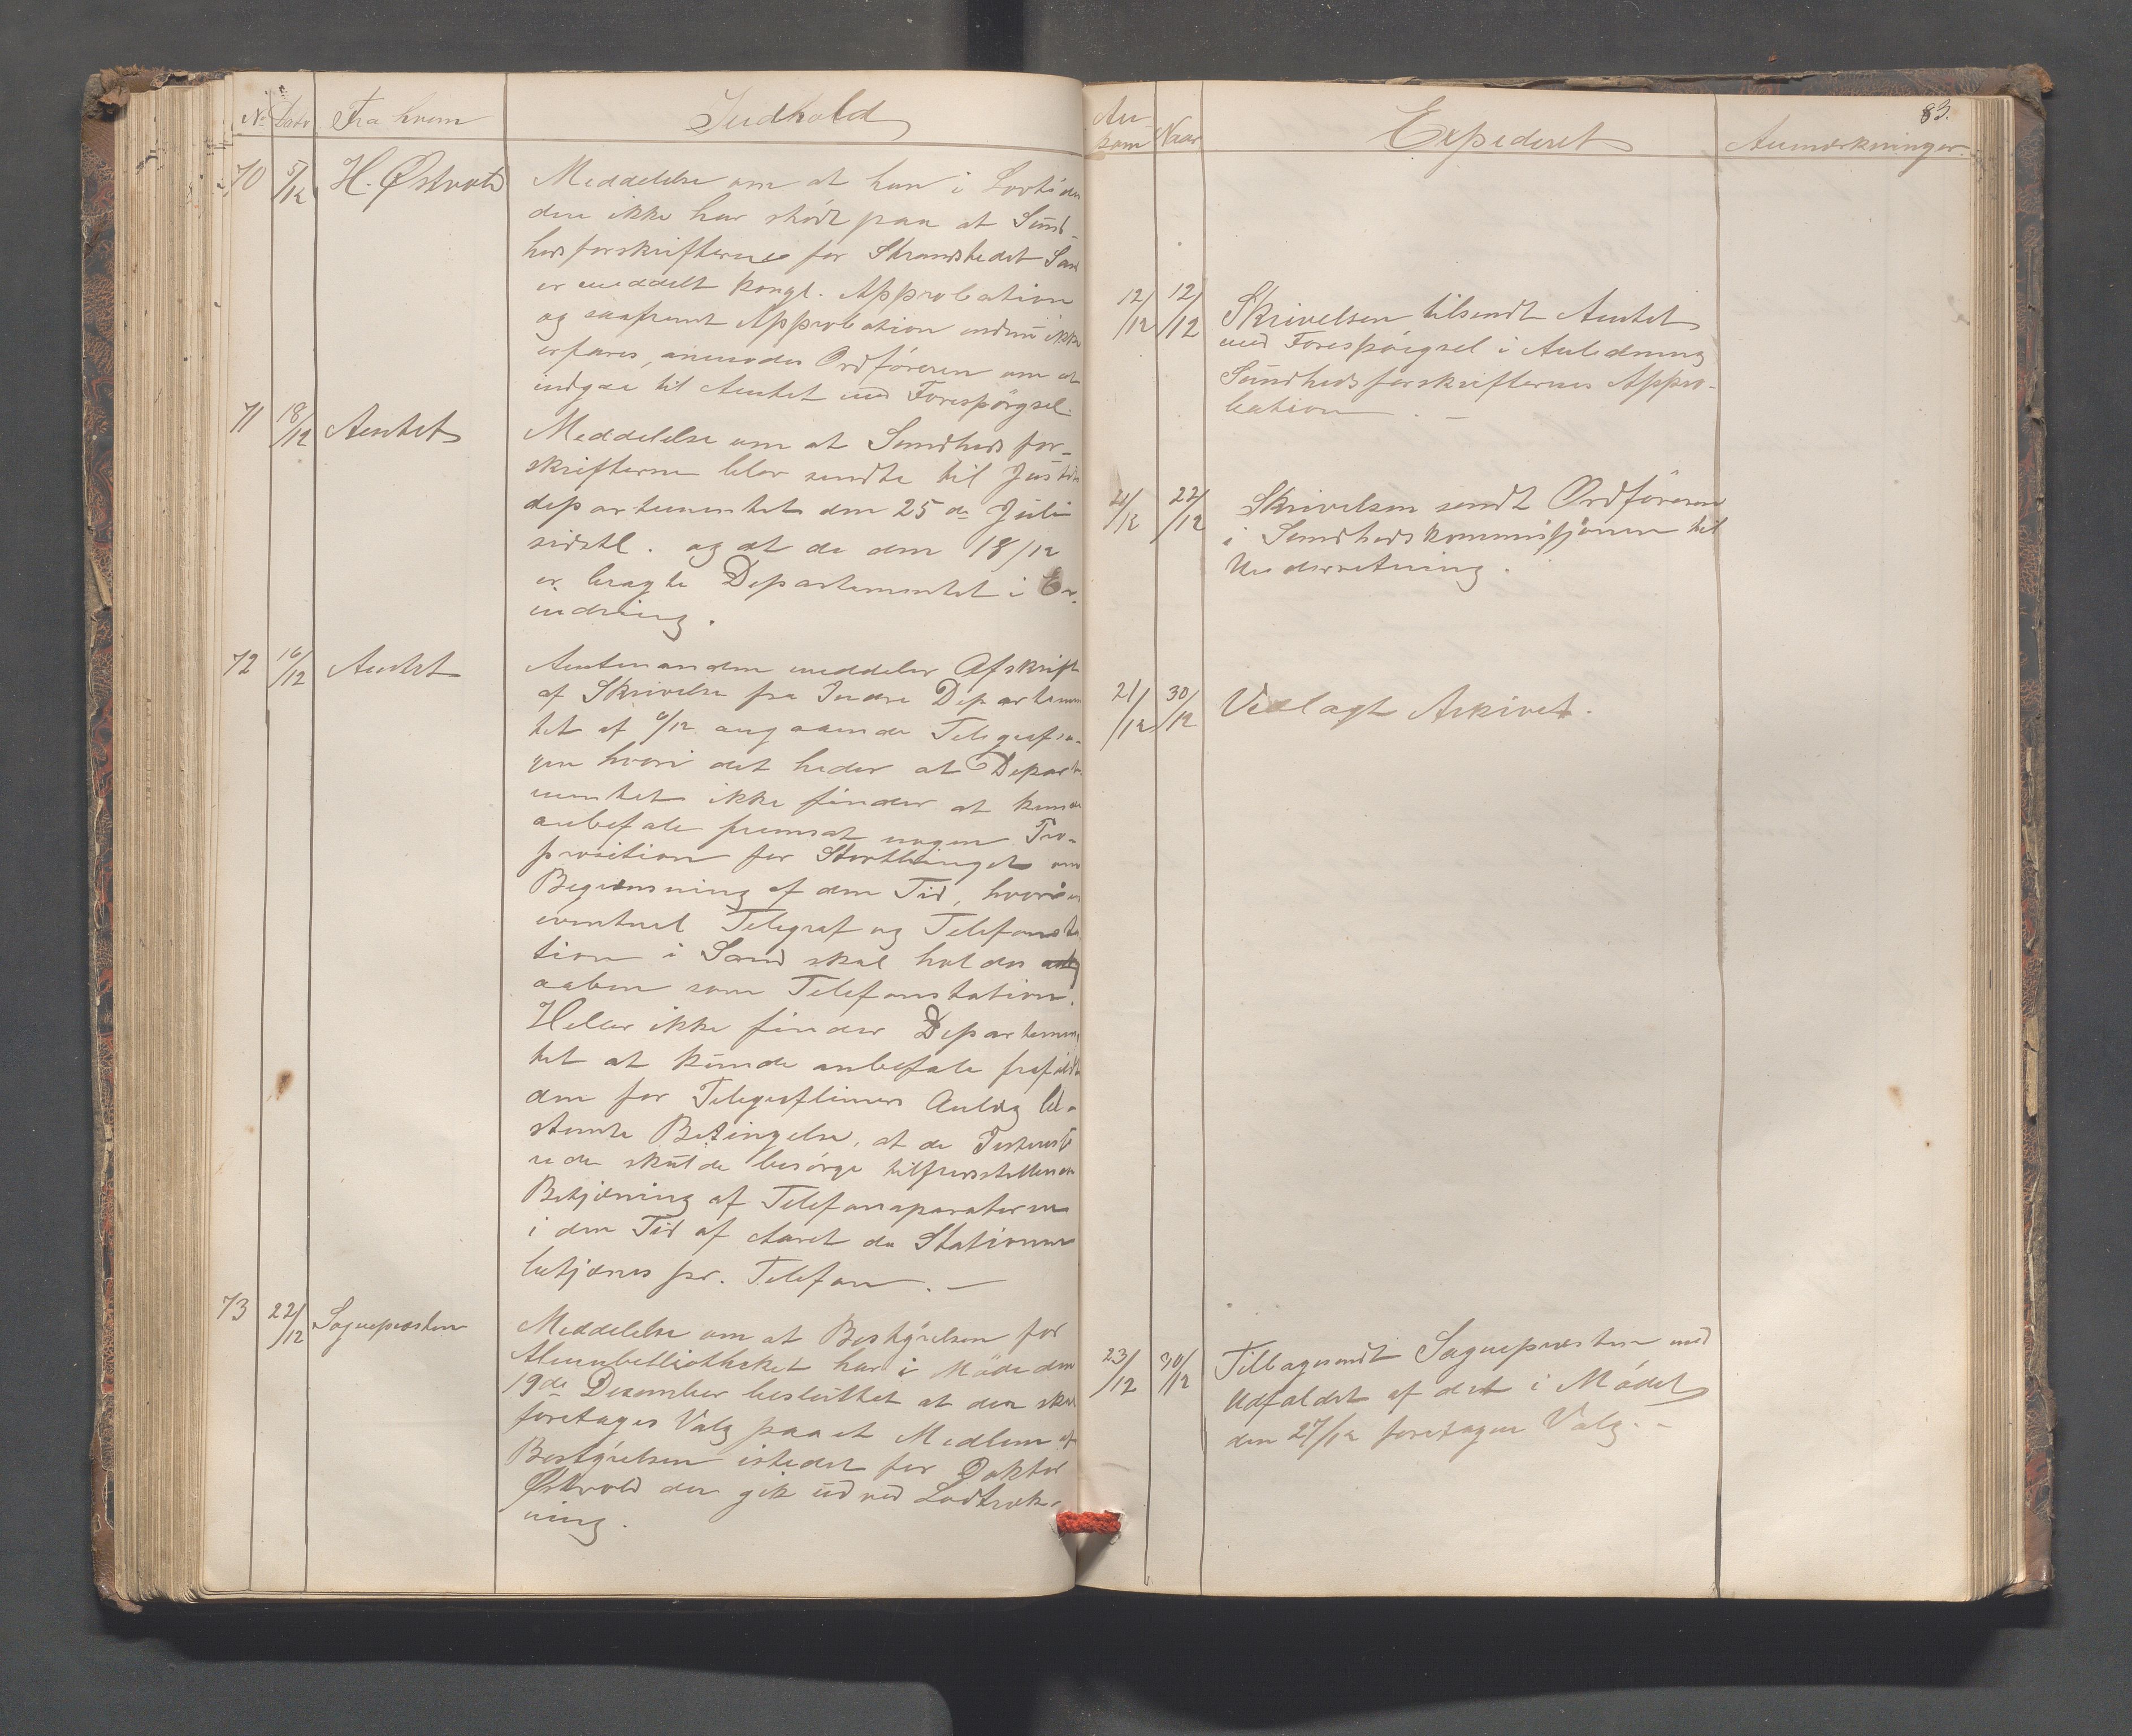 No Dato Fra hvem Indhold
70 5/12 H. Østvold Meddelelse om at han i Lovtiden
den ikke har stødt paa at Sund-
hedsforskrifterne for Strandstedet Sand
er meddelt kongl. Approbation
og saafremt Approbation endnu ikke
erfares, anmodes Ordføreren om at
indgaa til Amtet med Forespørgsel.
71 18/12 Amtet Meddelelse om at Sundhedsfor-
skrifterne blev sendte til Justits
departementet den 25de Juli
sidstl. og at de den 18/12
er bragte Departementet i Er-
indring.
72 16/12 Amtet Amtmanden meddeler Afskrift
af Skrivelse fra Indre Departemen
tet af 6/12 angaaende Telegrafsa-
gen hvori det heder at Departe
mentet ikke finder at kunde
anbefale fremsat nogen Pro-
position for Storthinget om
Begrænsning af den Tid, hvori en
eventuel Telegraf og Telefonsta
tion i Sand skal holdes
aaben som Telefonstation.
Heller ikke finder Departemen
tet at kunde anbefale frafaldt
den for Telegraflinjens Anlæg be-
stemte Betingelse, at de
skulde besørge tilfredsstillende
Betjening af Telefonaparaterne
i den Tid af Aaret da Stationen
betjenes pr. Telefon. —
73 22/12 Sognepresten Meddelelse om at Bestyrelsen for
Almenbibliotheket har i Møde den
19de Desember besluttet at der skal
foretages Valg paa et Medlem af
Bestyrelsen istedet for Doktor
Østvold der gik ud ved Lodtræk-
ning.
83.
An-
kom Naar Expederet Anmærkninger.
12/12 12/12 Skrivelsen tilsendt Amtet
med Forespørgsel i Anledning
Sundhedsforskrifternes Appro-
bation. —
21/12 22/12 Skrivelsen sendt Ordføreren
i Sundhedskommissjonen til
Underretning.
21/12 30/12 Vedlagt Arkivet.
23/12 30/12 Tilbagesendt Sognepresten med
Udfaldet af det i Mødet
den 27/12 foretagne Valg. –